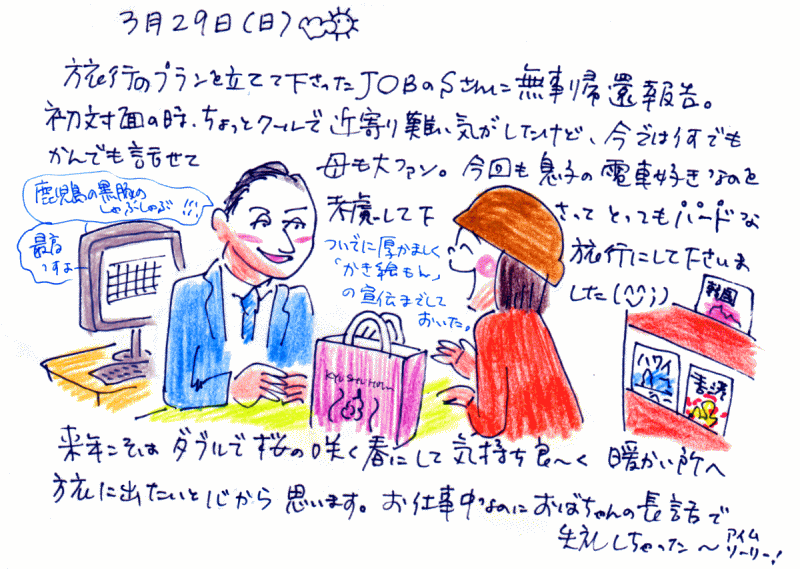 3月29日(日)
旅行のプランを立てて下さったJOBのSさんに無事帰還報告。
初対面の時、ちょっとクールで近寄り難い気がしたけど、今では何でも
かんでも話せて母も大ファン。今回も息子の電車好きなのを
考慮して下さってとってもハードな
旅行にして下さいま
した(^^;)
鹿児島の黒豚の
しゃぶしゃぶ
最高
っすよー
ついでに厚かましく
「かき絵もん」
の宣伝までして
おいた。
KYUSHU
韓国
ハワイ
香港
来年こそはダブルで桜の咲く春にして気持ち良〜く暖かい所へ
旅に出たいと心から思います。お仕事中なのにおばちゃんの長話で
失礼しちゃった〜アイム
ソーリー!